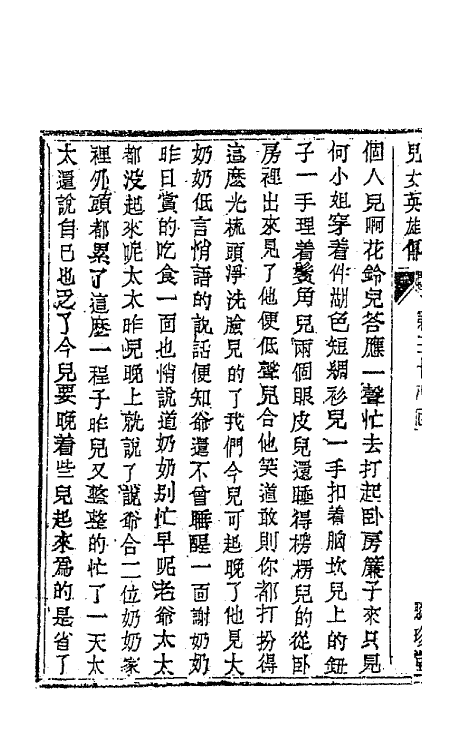 兒女英雄傳
個人兒啊花鈴兒答應一聲忙去打起卧房簾子來只見
何小姐穿着件湖色短綢衫兒一手扣着胸坎兒上的鈕
子一手理着鬢角兒兩個眼皮兒還睡得楞楞兒的從卧
房裡出來見了他便低聲兒合他笑道敢則你都打扮得
這麽光梳頭淨洗臉兒的了我們今兒可起晚了他見大
奶奶低言悄語的說話便知爺還不曾睡醒一面謝奶奶
昨日賞的吃食一面也悄說道奶奶别忙早呢老爺太太
都没起來呢太太昨兒晚上就說了說爺合二位奶奶家
裡外頭都累了這麽一程子昨兒又整整的忙了一天太
太還說自己也乏了今兒要晚着些兒起來爲的是省了